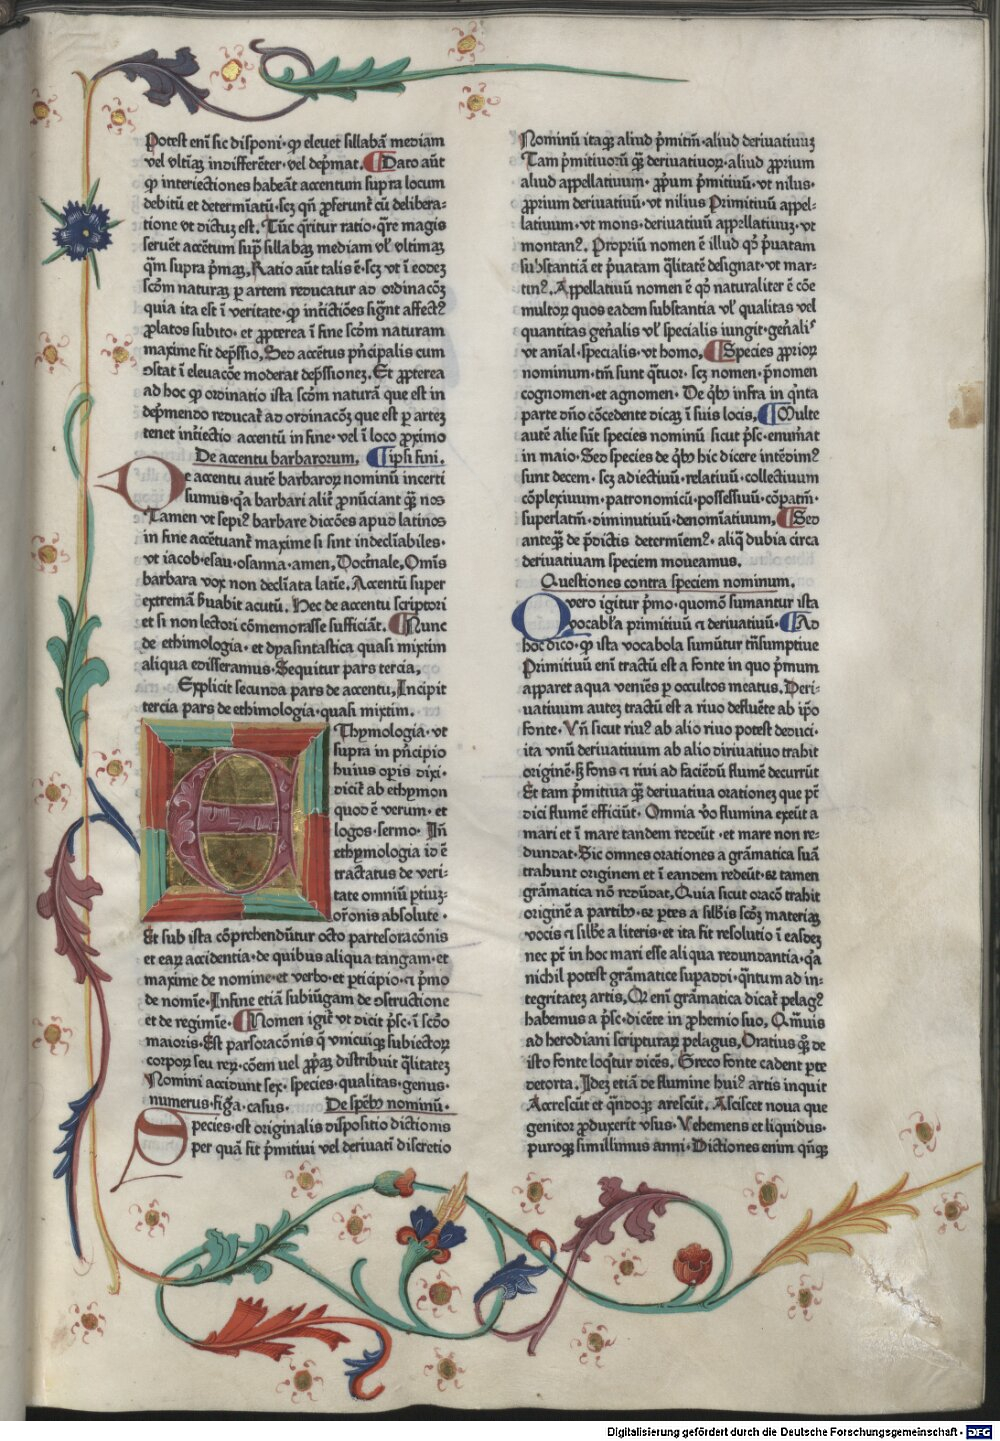 Potest eni̅ sic disponi· ꝙ eleuet sillaba̅ mediam
vel vltimā indifferēter· vel dep̄mat. ¶ Dato au̅t
ꝙ interiectiones habeāt accentum supra locum
debitū et determīatū· scꝫ qn̄ ꝓferunt᷑ cū delibera⸗
tione vt dictuꝫ est. Tūc q̄ritur ratio· q̄re magis
seruēt accētum sup̄ sillabaꝫ mediam vl̕ vltimaꝫ
q̄m supra p̄maꝫ, Ratio aūt talis ē· scꝫ vt ī eodeꝫ
scd̄m naturaꝫ ꝑ artem reducatur ad ordinacōꝫ
quia ita est ī veritate· ꝙ int̕ictiōes sig̅nt affectꝰ
ꝓlatos subito· et ꝓpterea ī fine scd̄m naturam
maxime fit dep̄ssio, Sed accētus pn̄cipalis cum
ꝯstat ī eleuacōe moderat dep̄ssioneꝫ. Et ꝓpterea
ad hoc ꝙ ordinatio ista scd̄m naturā que est in
dep̄mendo reducat᷑ ad ordinacōꝫ que est ꝑ arteꝫ
tenet int̕iectio accentū in fine· vel ī loco ꝓximo
De accentu barbarorum. ¶ ipsi fini.
De accentu autē barbaroꝝ nominū incerti
sumus· q̄a barbari alit᷑ ꝓnūciant qꝫ̄ nos
Tamen vt sepiꝰ barbare diccōes apud latinos
in fine accētuant᷑ maxime si sint indeclīabiles·
vt iacob· esau· osanna· amen, Doct̕nale, Omīs
barbara vox non declīata latīe. Accentū super
extremā ẜuabit acutū. Hec de accentu scriptori
et si non lectori cōmemorasse sufficiāt. ¶ Nunc
de ethimologia· et dyasintastica quasi mixtim
aliqua edisseramus· Sequitur pars tercia,
Explicit secunda pars de accentu, Incipit
tercia pars de ethimologia· quasi mixtim.
EThymologia· vt
supra in pn̄cipio
huius opis dixi·
dicit᷑ ab ethymon
quod ē verum· et
logos· sermo· In̄
ethymologia id ē
tractatus de veri⸗
tate omniū ꝑtiuꝫ·
orōnis absolute·
Et sub ista cōprehendūtur octo partes oracōnis
et eaꝝ accidentia· de quibus aliqua tangam· et
maxime de nomine· et verbo· et ꝑticipio· ⁊ p̄mo
de nomīe· Infine etiā subiūgam de ꝯstructione
et de regimīe· ¶ Nomen igit᷑ vt dicit p̄sc· ī scd̄o
maioris· Est pars oracōnis q̄ vnicuiqꝫ subiectoꝝ
corpoꝝ seu reꝝ· cōem uel ꝓp̄aꝫ distribuit q̄litateꝫ
Nomini accidunt sex· species· qualitas· genus·
numerus· fig̅a· casus. De spēbꝰ nominū·
Species· est originalis dispositio dictionis
per quā fit p̄mitiui vel deriuati discretio
Nominū itaqꝫ aliud p̄mitm̄· aliud deriuatiuuꝫ
Tam p̄mitiuorū qꝫ̄ deriuatiuoꝝ· aliud ꝓprium
aliud appellatiuum· ꝓp̄um p̄mitiuū· vt nilus·
ꝓprium deriuatiuū· vt nilius Primitiuū appel⸗
latiuum· vt mons· deriuatiuū appellatiuuꝫ· vt
montanꝰ. Propriū nomen ē illud qd̕ p̄uatam
substantiā et p̄uatam q̄litatē designat· vt mar⸗
tinꝰ. Appellatiuū nomen ē qd̕ naturaliter ē cōe
multoꝝ quos eadem substantia vl̕ qualitas vel
quantitas gen̄alis vl̕ specialis iungit· gen̄aliˢ
vt anīal· specialis· vt homo, ¶ Species ꝓprioꝝ
nominum· tm̄ sunt q̄tuor· scꝫ nomen· p̄nomen
cognomen· et agnomen· De q̄bꝰ infra in q̄nta
parte dn̄o cōcedente dicaꝫ ī suis locis, ¶ Multe
autē alie sūt species nominū sicut p̄sc· enum̄at
in maio· Sed species de q̄bꝰ hic dicere intēdimꝰ
sunt decem· scꝫ adiectiuū· relatiuū· collectiuum
cōplexiuum· patronomicū· possessiuū· cōpatm̄·
superlatm̄· diminutiuū· denomīatiuum, ¶ Sed
anteqꝫ̄ de p̄dictis determīemꝰ· aliq̄ dubia circa
deriuatiuam speciem moueamus.
Questiones contra speciem nominum.
Quero igitur p̄mo· quomō sumantur ista
vocabl̕a primitiuū ⁊ deriuatiuū· ¶ Ad
hoc dico· ꝙ ista vocabola sumūtur tn̄sumptiue
Primitiuū eni̅ tractū est a fonte in quo p̄mum
apparet aqua veniēs ꝑ occultos meatus. Deri⸗
uatiuum auteꝫ tractū est a riuo defluēte ab ip̄o
fonte· Vn̄ sicut riuꝰ ab alio riuo potest deduci·
ita vnū deriuatiuum ab alio diriuatiuo trahit
originē· ꝫ fons ⁊ riui ad faciēdū flumē decurrūt
Et tam p̄mitiua qꝫ̄ deriuatiua orationeꝫ que pt̄
dici flumē efficiūt· Omnia v̕o flumina exeūt a
mari et ī mare tandem redeūt· et mare non re⸗
dundat· Sic omnes orationes a grāmatica suā
trahunt originem et ī eandem redeūt· ꝫ tamen
grāmatica nō redūdat, Quia sicut oracō trahit
originē a partibꝰ· ꝫ ꝑtes a sillb̕is scd̄ꝫ materiaꝫ
vocis ⁊ silb̕e a literis· et ita fit resolutio ī easdeꝫ
nec pt̄ in hoc mari esse aliqua redundantia· q̄a
nichil potest grāmatice supaddi· q̄ntum ad in⸗
tegritateꝫ artis, Qd̕ eni̅ grāmatica dicat᷑ pelagꝰ
habemus a p̄sc· dicēte in ꝓhemio suo, Qm̄uis
ad herodiani scripturaꝝ pelagus, Oratius qꝫ̄ de
isto fonte loq̄tur dicēs. Greco fonte cadent ꝑce
detorta. Ideꝫ etiā de flumine huiꝰ artis inquit
Accrescūt et q̄ndoqꝫ arescūt. Asciscet noua que
genitor ꝓduxerit vsus· Vehemens et liquidus·
puroqꝫ simillimus anni· Dictiones enim qn̄qꝫ
Digitalisierung gefördert durch die Deutsche Forschungsgemeinschaft - DFG